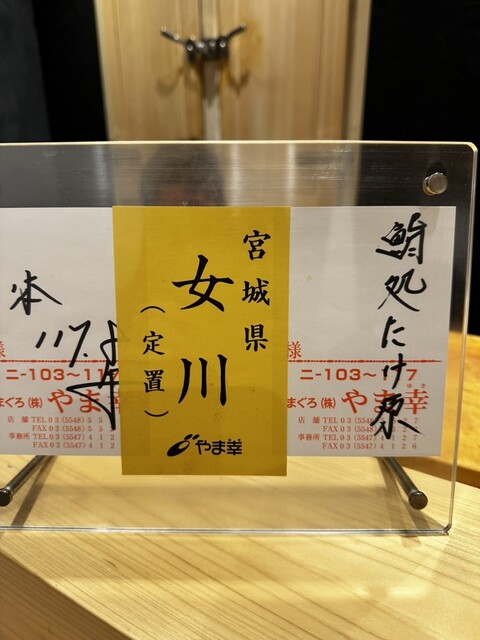 鮨処たけ原
様
ニ-103〜117
まぐろ(株) やま幸
ゆき
店 舗 TEL 03 (5548) 5
FAX 03 (5548) 5
事務所 TEL 03 (5547) 4 1 2 7
FAX 03 (5547) 4 1 2 6
宮城県
女川
(定置)
やま幸
本
117.
様
ニ-103〜11
まぐろ(株) やま幸
店 舗 TEL 03 (5548) 5 5
FAX 03 (5548) 5 5
事務所 TEL 03 (5547) 4 1 2
FAX 03 (5547) 4 1 2